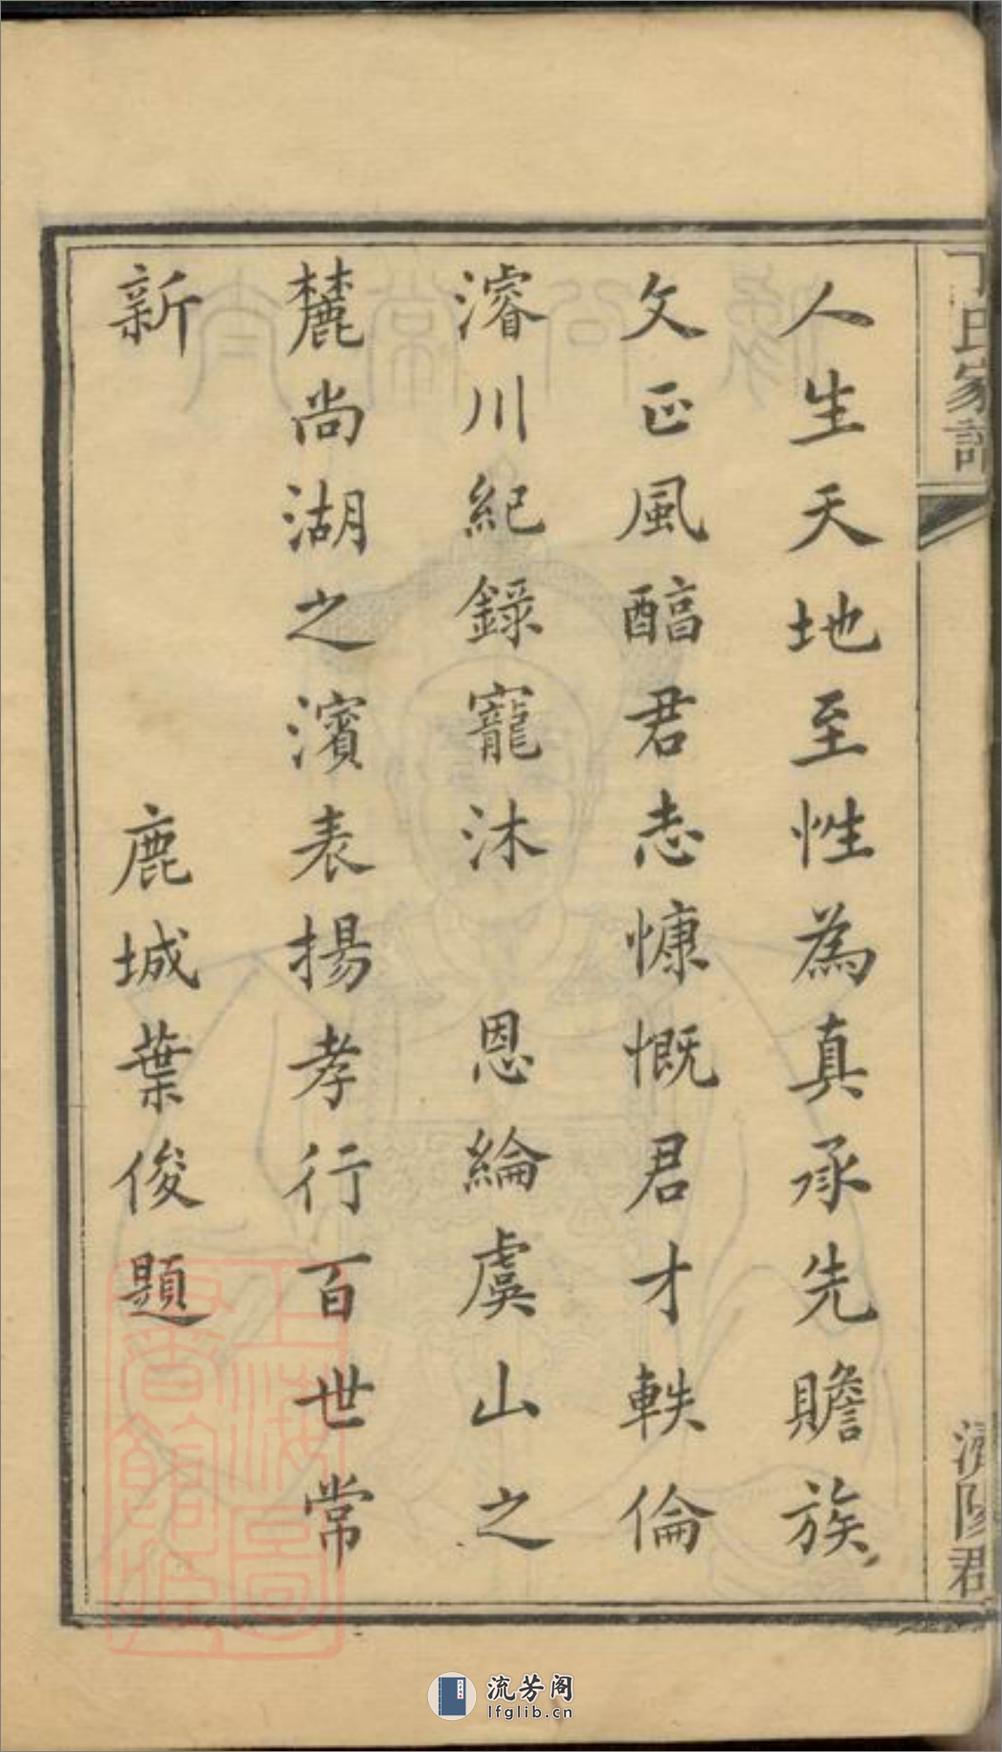 人生天地至性為真承先贍族
文正風醕君志慷慨君才軼倫
濬川紀錄寵沐 恩綸虞山之
麓尚湖之濱表揚孝行百世常
新 鹿城葉俊題
丁氏家譜
濟陽君
上海圖書館藏
流芳阁
lfglib.cn